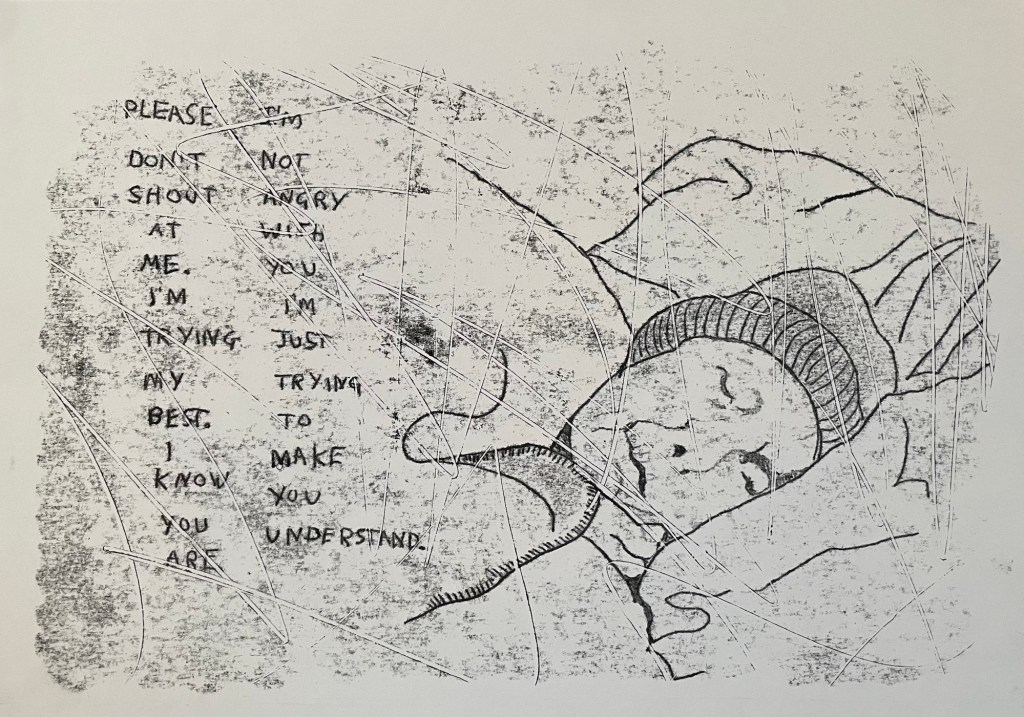 PLEASE
DON'T
SHOUT
AT
ME.
I'M
TRYING
MY
BEST.
I
KNOW
YOU
ARE
I'M
NOT
ANGRY
WITH
YOU
I'M
JUST
TRYING
TO
MAKE
YOU
UNDERSTAND.